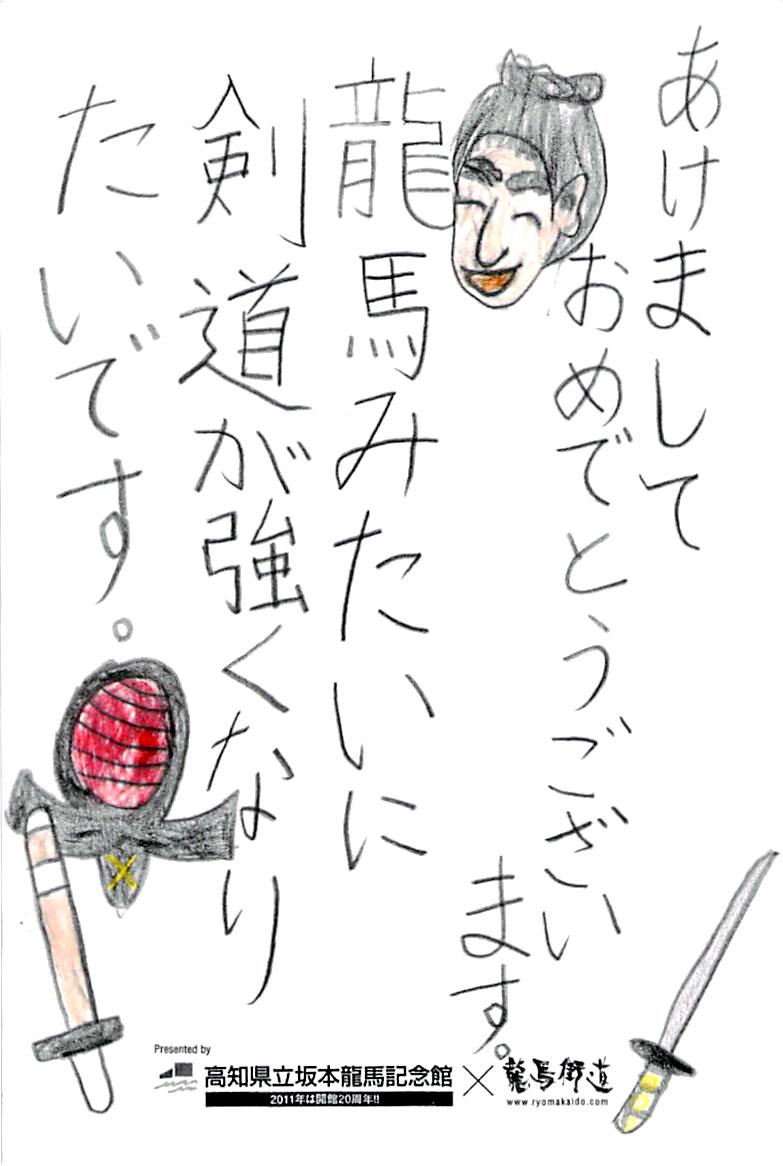 あけまして
おめでとうござい
ます。
龍馬みたいに
剣道が強くなり
たいです。
Presented by
高知県立坂本龍馬記念館
2011年は開館20周年!!
×
龍馬街道
www.ryomakaido.com